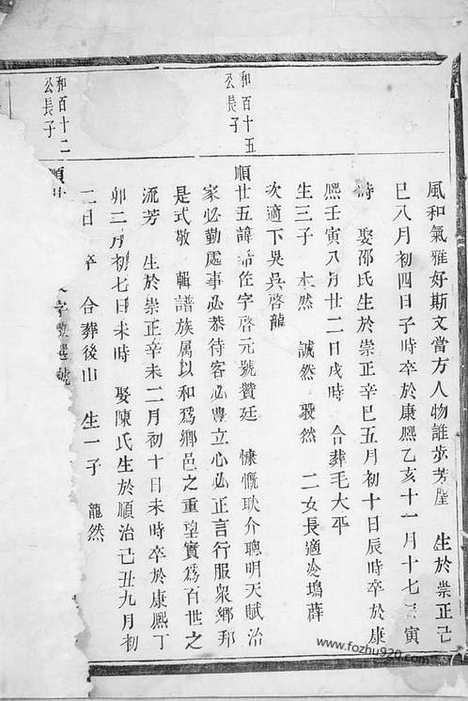 風和氣雅好斯文當方人物誰步芳塵 生於崇正己
巳八月初四日子時卒於康熙乙亥十一月十七日寅
時 娶邵氏生於崇正辛巳五月初十日辰時卒於康
熙壬寅八月廿二日戌時 合葬毛大平
生三子 本然 誠然 毅然 二女長適塢薛
次適下吳吳啓龍
和百十五
公長子
順廿五諱希佐字啓元號贊廷 慷慨耿介聰明天賦治
家必勤處事必恭待客必豊立心必正言行服衆鄉邦
是式敬 輯譜族属以和爲鄉邑之重望實爲百世之
流芳 生於崇正辛未二月初十日未時卒於康熙丁
卯二月初七日未時 娶陳氏生於順治己丑九月初
二日 卒 合葬後山 生一子 龍然
和百十二
公長子
順
www.fozhu920.com